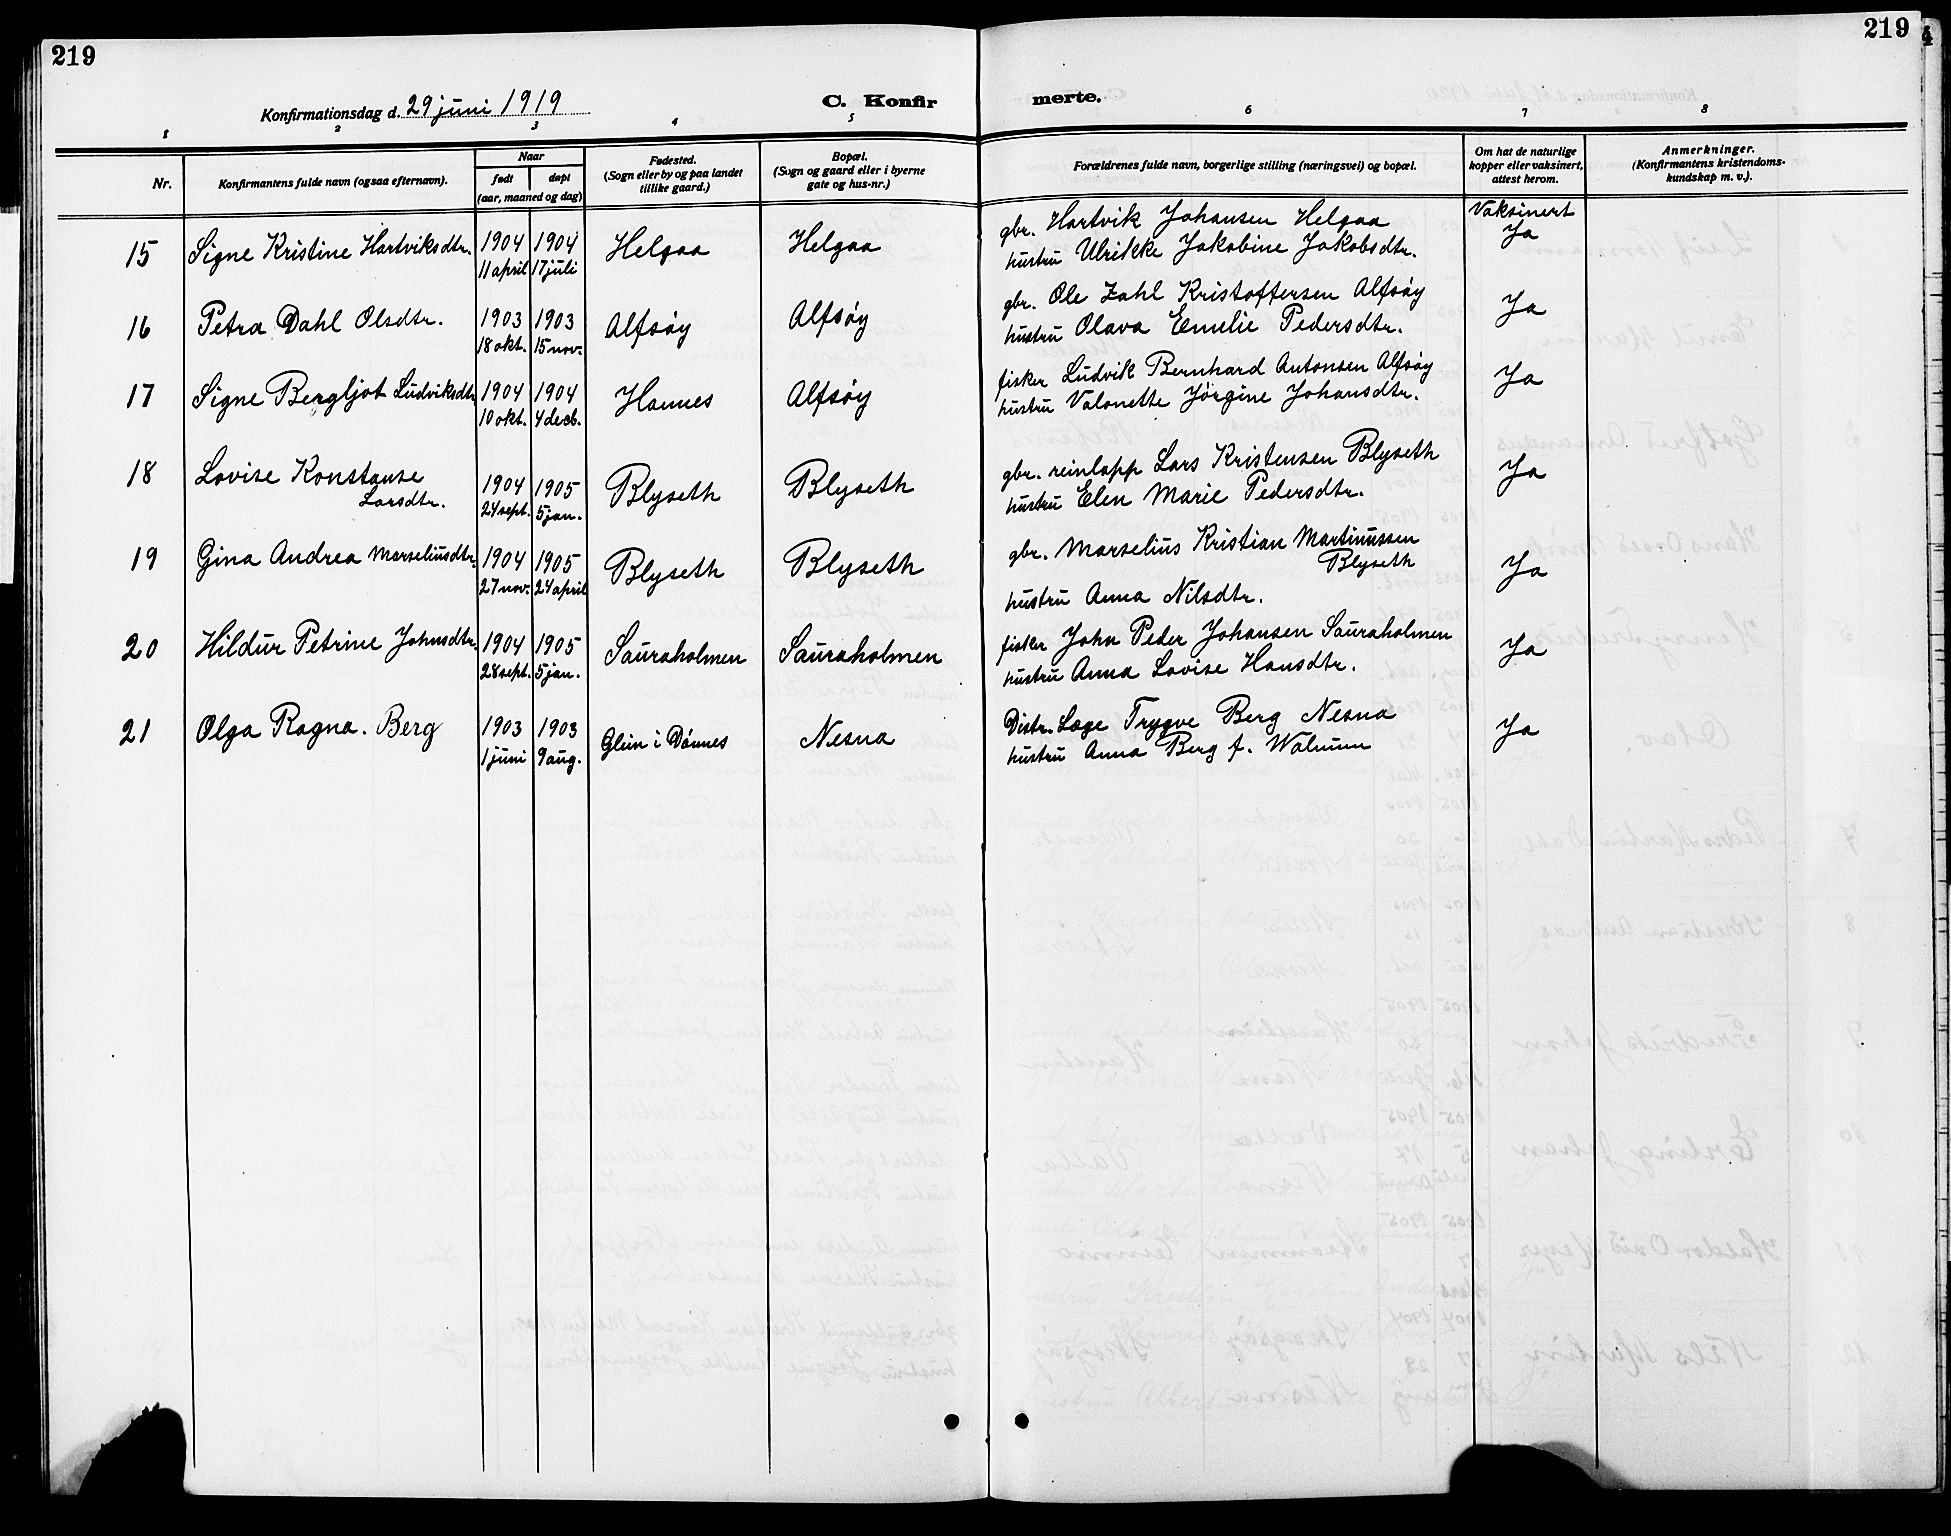 219
219
Konfirmationsdag d. 29 juni 1919
C. Konfirmerte.
1 2 3 4 5 6 7 8
Nr.
Konfirmantens fulde navn (ogsaa efternavn).
Naar
født
døpt
(aar, maaned og dag)
Fødested.
(Sogn eller by og paa landet
tillike gaard.)
Bopæl.
(Sogn og gaard eller i byerne
gate og hus-nr.)
Forældrenes fulde navn, borgerlige stilling (næringsvei) og bopæl.
Om hat de naturlige
kopper eller vaksinert,
attest herom.
Anmerkninger.
(Konfirmantens kristendoms-
kundskap m. v.).
15 Signe Kristine Hartviksdtr. 1904 11 april 1904 17 juli Helgaa Helgaa
gbr. Hartvik Johansen Helgaa
hustru Ulrikke Jakobine Jakobsdtr.
Vaksinert
Ja
16 Petra Dahl Olsdtr. 1903 18 okt. 1903 15 nov. Alfsøy Alfsøy
gbr. Ole Zahl Kristoffersen Alfsøy
hustru Olava Emelie Pedersdtr.
Ja
17 Signe Bergljot Ludviksdtr 1904 10 okt. 1904 4 decb. Hannes Alfsøy
fisker Ludvik Bernhard Antonsen Alfsøy
hustru Valonette Jörgine Johansdtr.
Ja
18 Lovise Konstanse
Larsdtr. 1904 24 sept. 1905 5 jan. Blyseth Blyseth
gbr. reinlapp Lars Kristensen Blyseth
hustru Elen Marie Pedersdtr.
Ja
19 Gina Andrea Marseliusdtr. 1904 27 nov. 1905 24 april Blyseth Blyseth
gbr. Marselius Kristian Martinussen
Blyseth
hustru Anna Nilsdtr.
Ja
20 Hildur Petrine Johnsdtr. 1904 28 sept. 1905 5 jan. Sauraholmen Sauraholmen
fisker John Peder Johansen Sauraholmen
hustru Anna Lovise Hansdtr.
Ja
21 Olga Ragna. Berg 1903 1 juni 1903 9 aug. Glein i Dønnes Nesna
Distr. Læge Trygve Berg Nesna
hustru Anna Berg f. Walnum
Ja